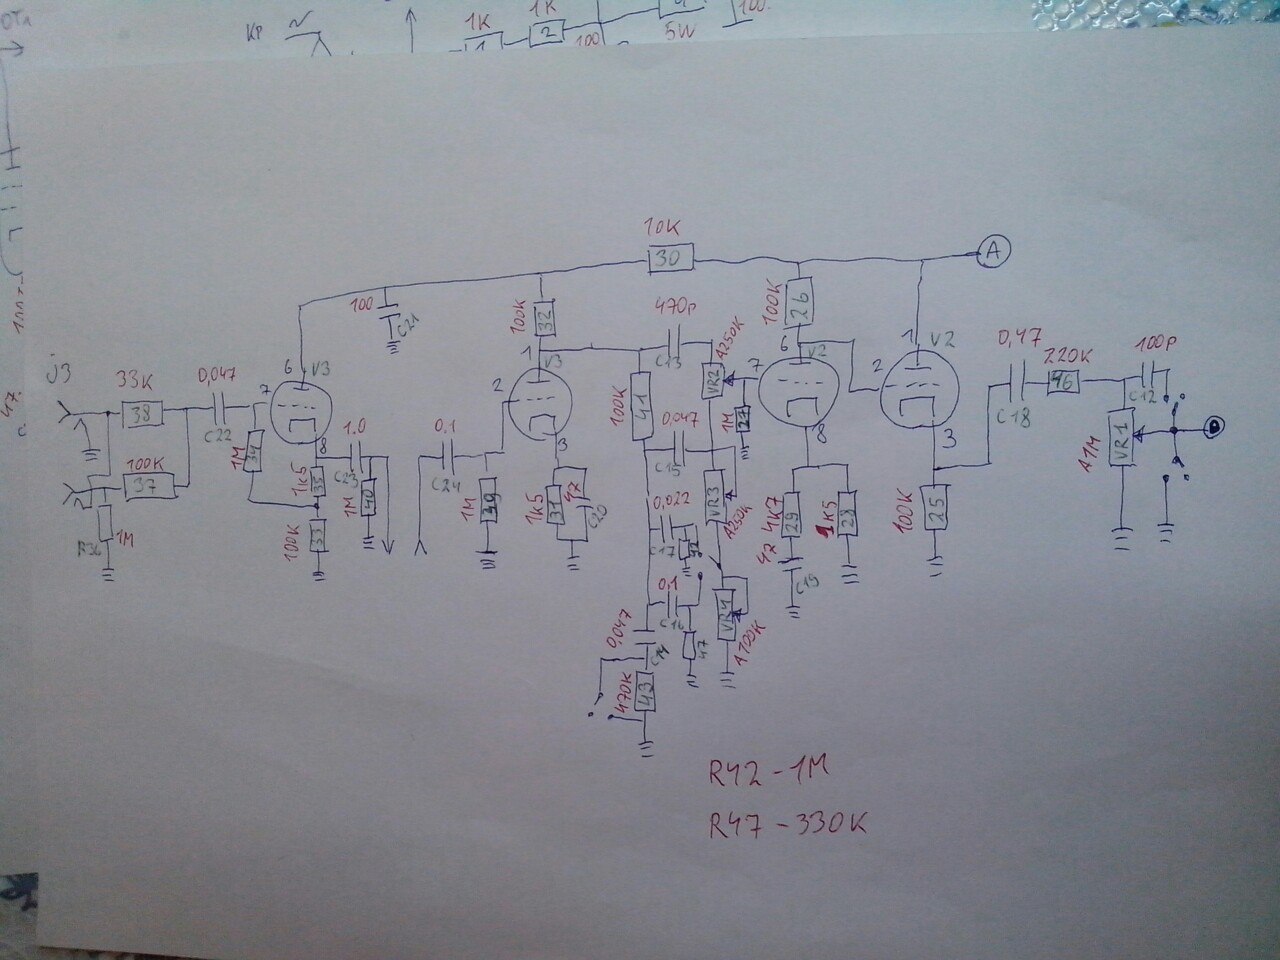 KP
1K
1K
1
2
100
5W
100
10K
30
A
100
C21
100K
32
470P
C13
A250K
VR2
100K
26
j3
33K
38
0,047
C22
6
V3
7
8
1M
34
1K5
35
100K
33
100K
37
1M
1.0
C23
1M
40
0.1
C24
1M
39
1
V3
2
3
1K5
31
47
C20
100K
41
0,047
C15
VR3
A250K
0,022
C17
42
0,1
C16
47
0,047
C14
470K
43
VR4
A100K
1M
27
7
6
V2
8
4K7
29
1K5
28
C19
1
V2
2
3
100K
25
0,47
C18
220K
46
100P
C12
A1M
VR1
R42-1M
R47-330K